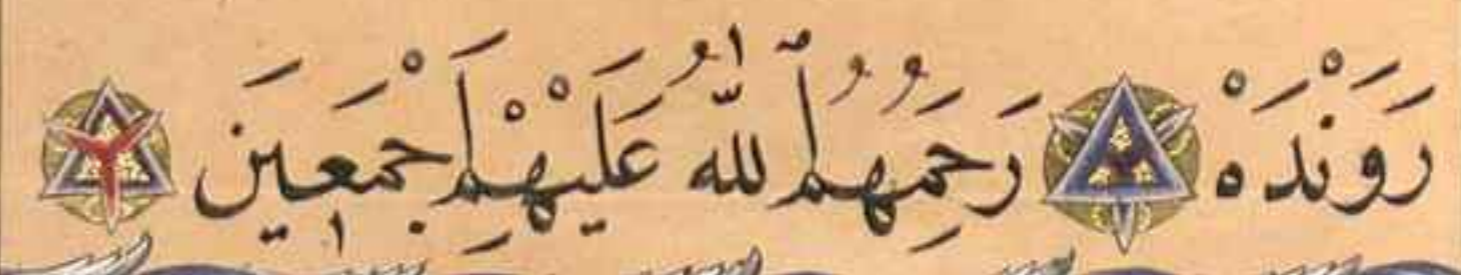 رَوَنْدَهْ رَحِمَهُمُ ٱللّٰهُ عَلَيْهِمْ اَجْمَعِين